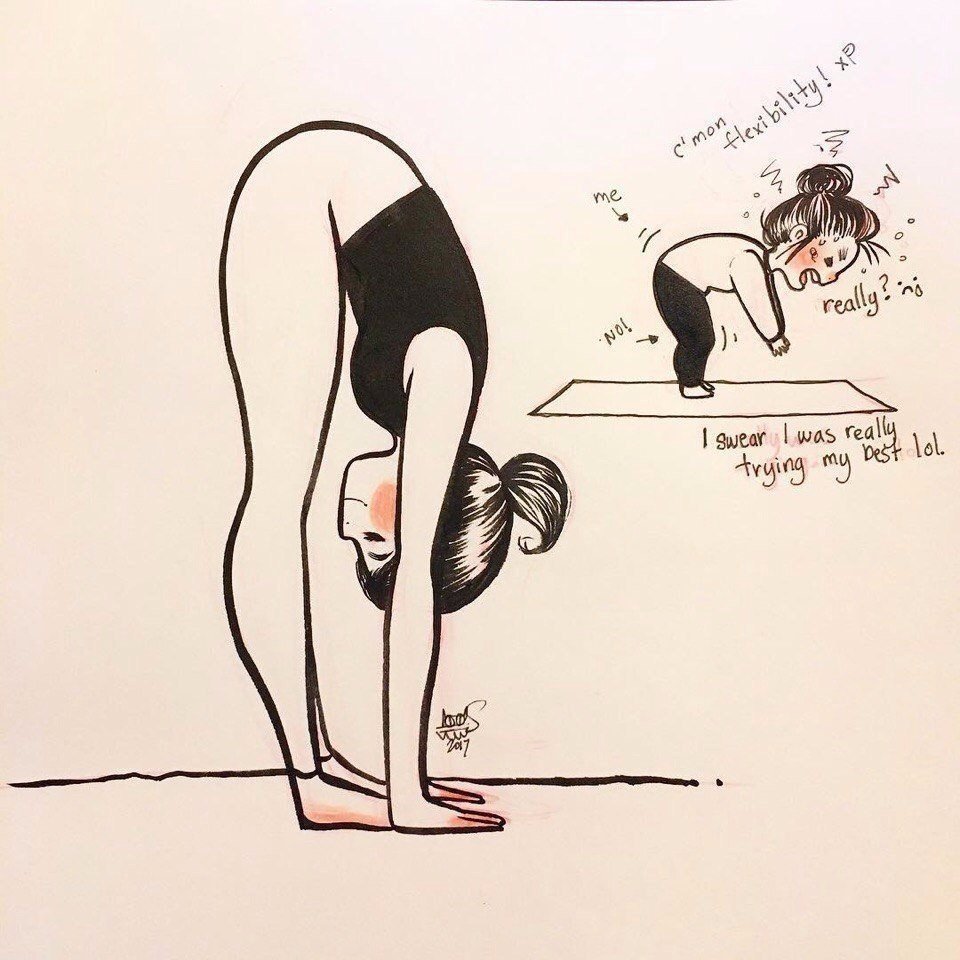 c'mon
flexibility! xP
me
really?
NO!
I swear I was really
trying my best lol.
2017